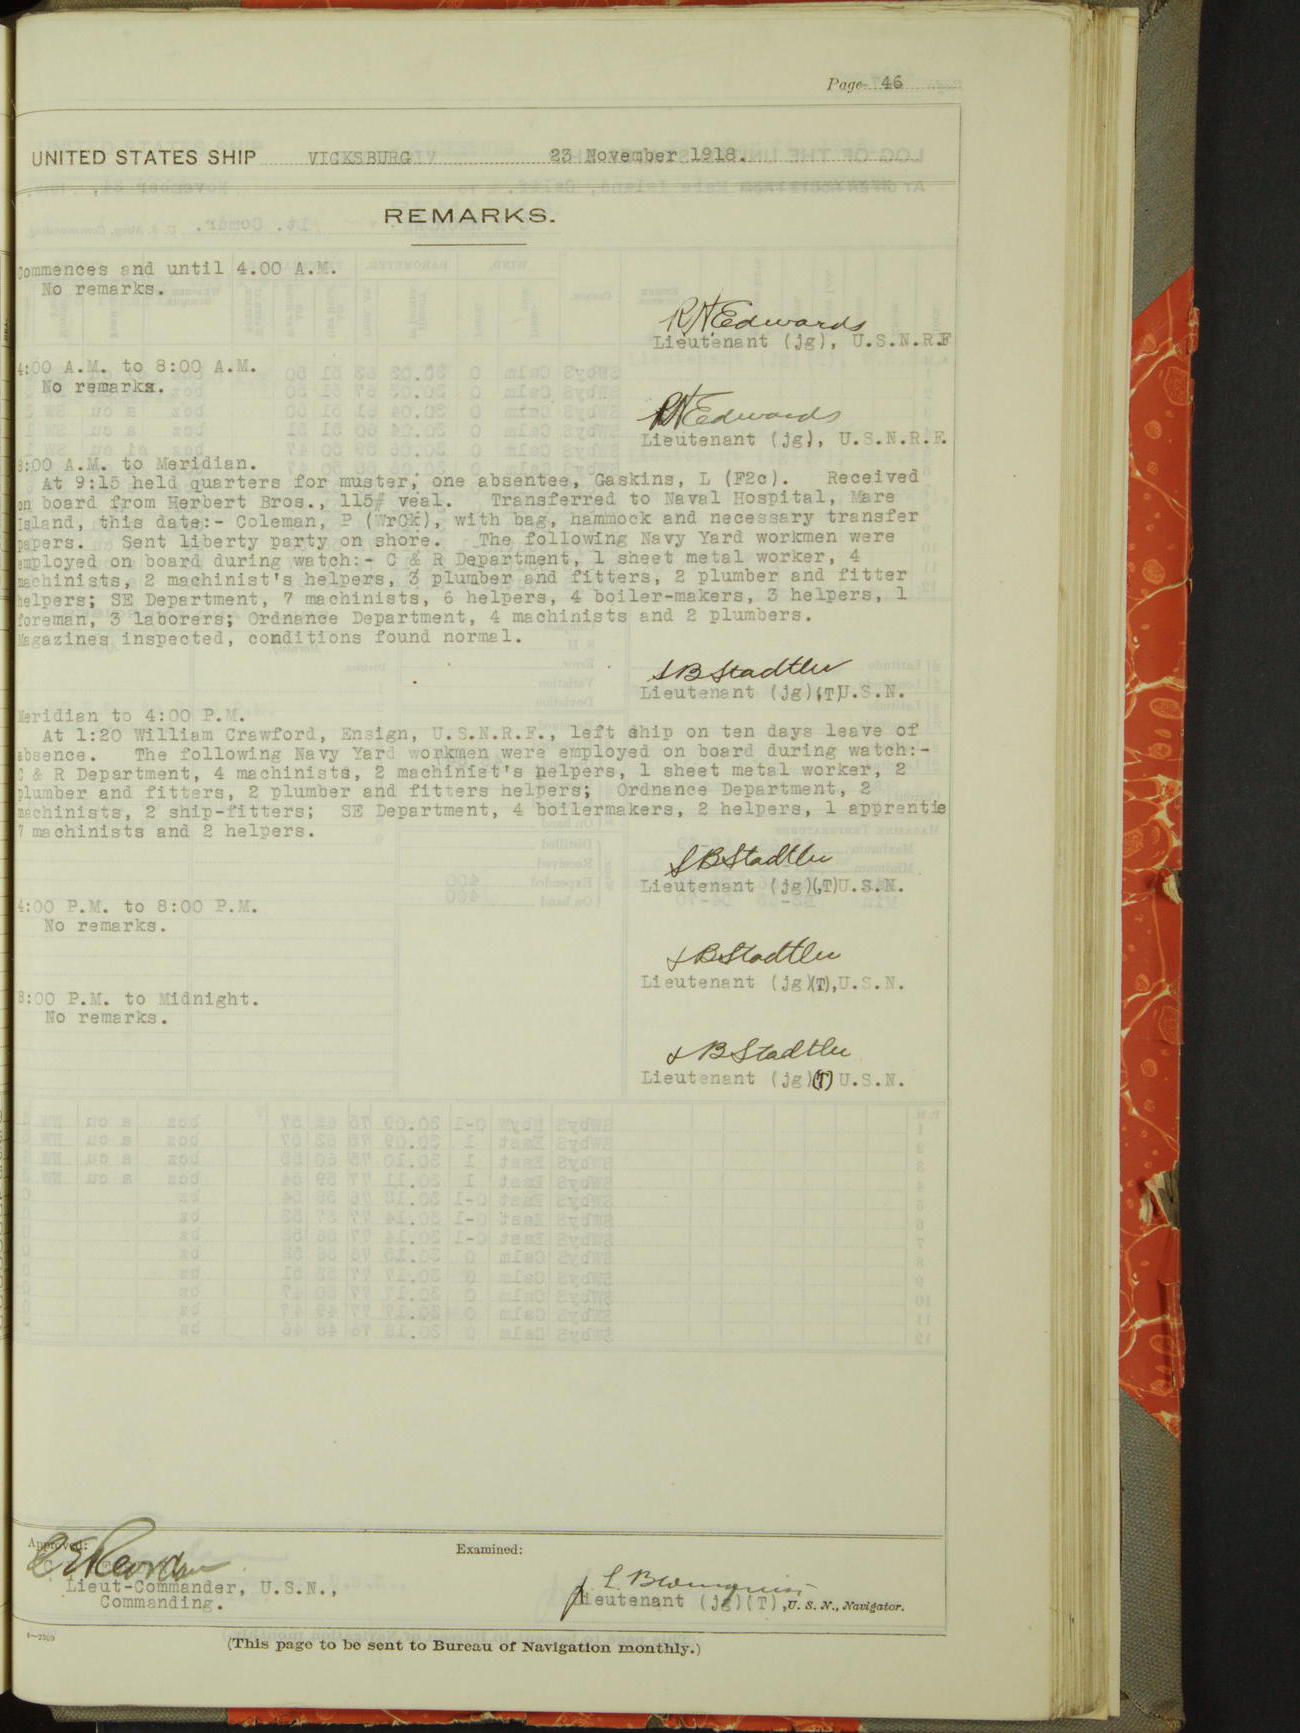 Page 46
UNITED STATES SHIP VICKSBURG 23 November 1918.
REMARKS.
Commences and until 4.00 A.M.
No remarks.
R H Edwards
Lieutenant (jg), U.S.N.R.F
4:00 A.M. to 8:00 A.M.
No remarks.
R H Edwards
Lieutenant (jg), U.S.N.R.F.
8:00 A.M. to Meridian.
At 9:15 held quarters for muster, one absentee, Gaskins, L (F2c). Received
on board from Herbert Bros., 115# veal. Transferred to Naval Hospital, Mare
Island, this date:- Coleman, P (WrOk), with bag, hammock and necessary transfer
papers. Sent liberty party on shore. The following Navy Yard workmen were
employed on board during watch:- C & R Department, 1 sheet metal worker, 4
machinists, 2 machinist's helpers, 3 plumber and fitters, 2 plumber and fitter
helpers; SE Department, 7 machinists, 6 helpers, 4 boiler-makers, 3 helpers, 1
foreman, 3 laborers; Ordnance Department, 4 machinists and 2 plumbers.
Magazines inspected, conditions found normal.
S B Stadtler
Lieutenant (jg)(T)U.S.N.
Meridian to 4:00 P.M.
At 1:20 William Crawford, Ensign, U.S.N.R.F., left ship on ten days leave of
absence. The following Navy Yard workmen were employed on board during watch:-
C & R Department, 4 machinists, 2 machinist's helpers, 1 sheet metal worker, 2
plumber and fitters, 2 plumber and fitters helpers; Ordnance Department, 2
machinists, 2 ship-fitters; SE Department, 4 boilermakers, 2 helpers, 1 apprentie
7 machinists and 2 helpers.
S B Stadtler
Lieutenant (jg)(T)U.S.N.
4:00 P.M. to 8:00 P.M.
No remarks.
S B Stadtler
Lieutenant (jg)(T),U.S.N.
8:00 P.M. to Midnight.
No remarks.
S B Stadtler
Lieutenant (jg)(T) U.S.N.
Approved:
Lieut-Commander, U.S.N.,
Commanding.
Examined:
Lieutenant (jg)(T),U. S. N., Navigator.
(This page to be sent to Bureau of Navigation monthly.)